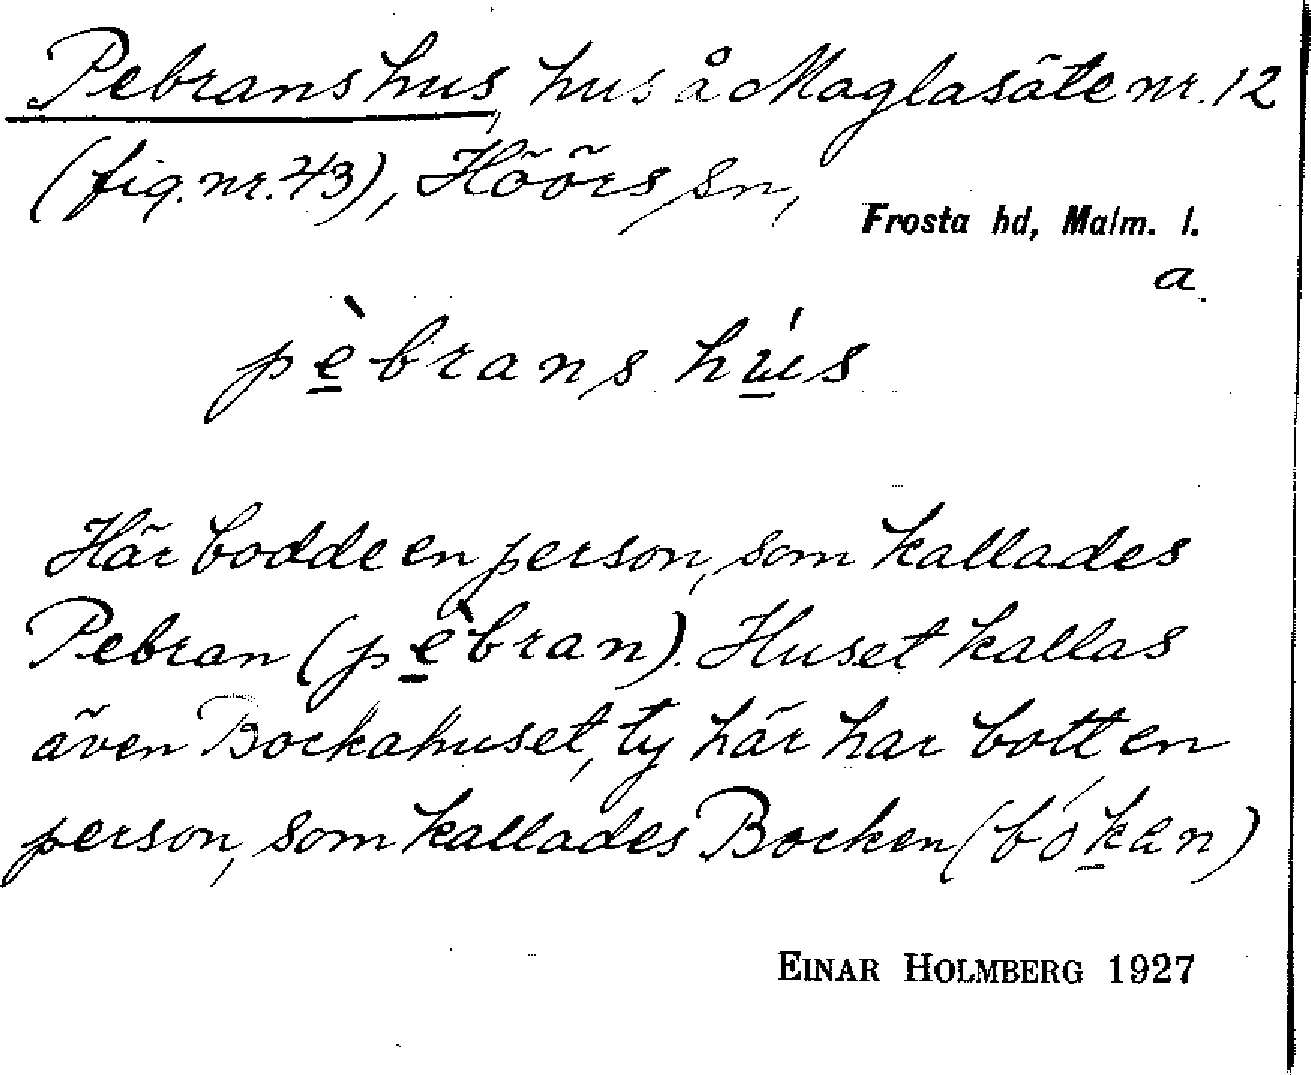 Pebrans hus, hus å Maglasäte nr. 12
(fig. nr. 43), Höörs sn,
Frosta hd, Malm. l.
a.
pè̱brans hú̱s
Här bodde en person, som kallades
Pebran (pè̱bran). Huset kallas
även Bockahuset, ty här har bott en
person, som kallades Bocken (bóḵen)
EINAR HOLMBERG 1927